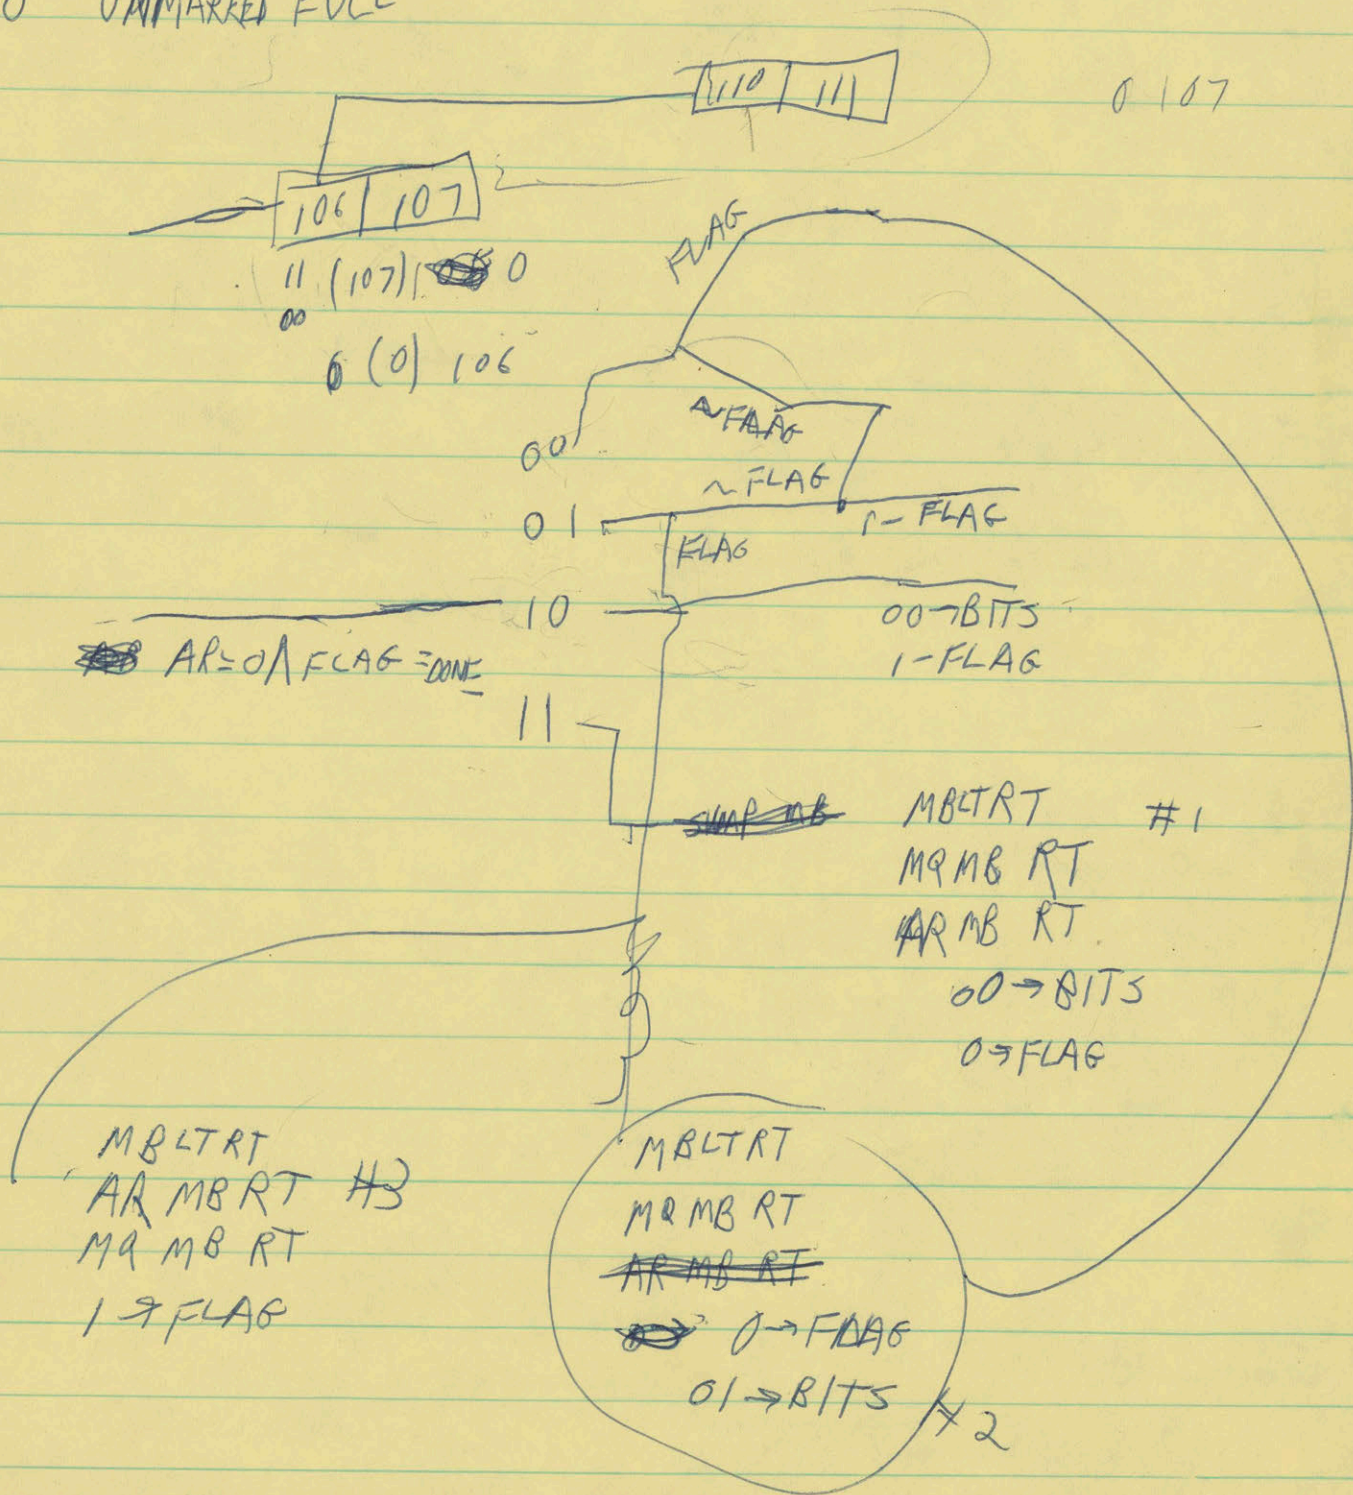 UNMARKED FULL
110 111
0 107
106 107
11 (107) 0
00
(0) 106
FLAG
~FLAG
00
~FLAG
01
1-FLAG
FLAG
10
00→BITS
1-FLAG
AR=0 ∧ FLAG = DONE
11
SWAP MB
MBLTRT #1
MQ MB RT
AR MB RT
00→BITS
0→FLAG
MBLTRT
AR MB RT #3
MQ MB RT
1→FLAG
MBLTRT
MQ MB RT
AR MB RT
0→FLAG
01→BITS
#2